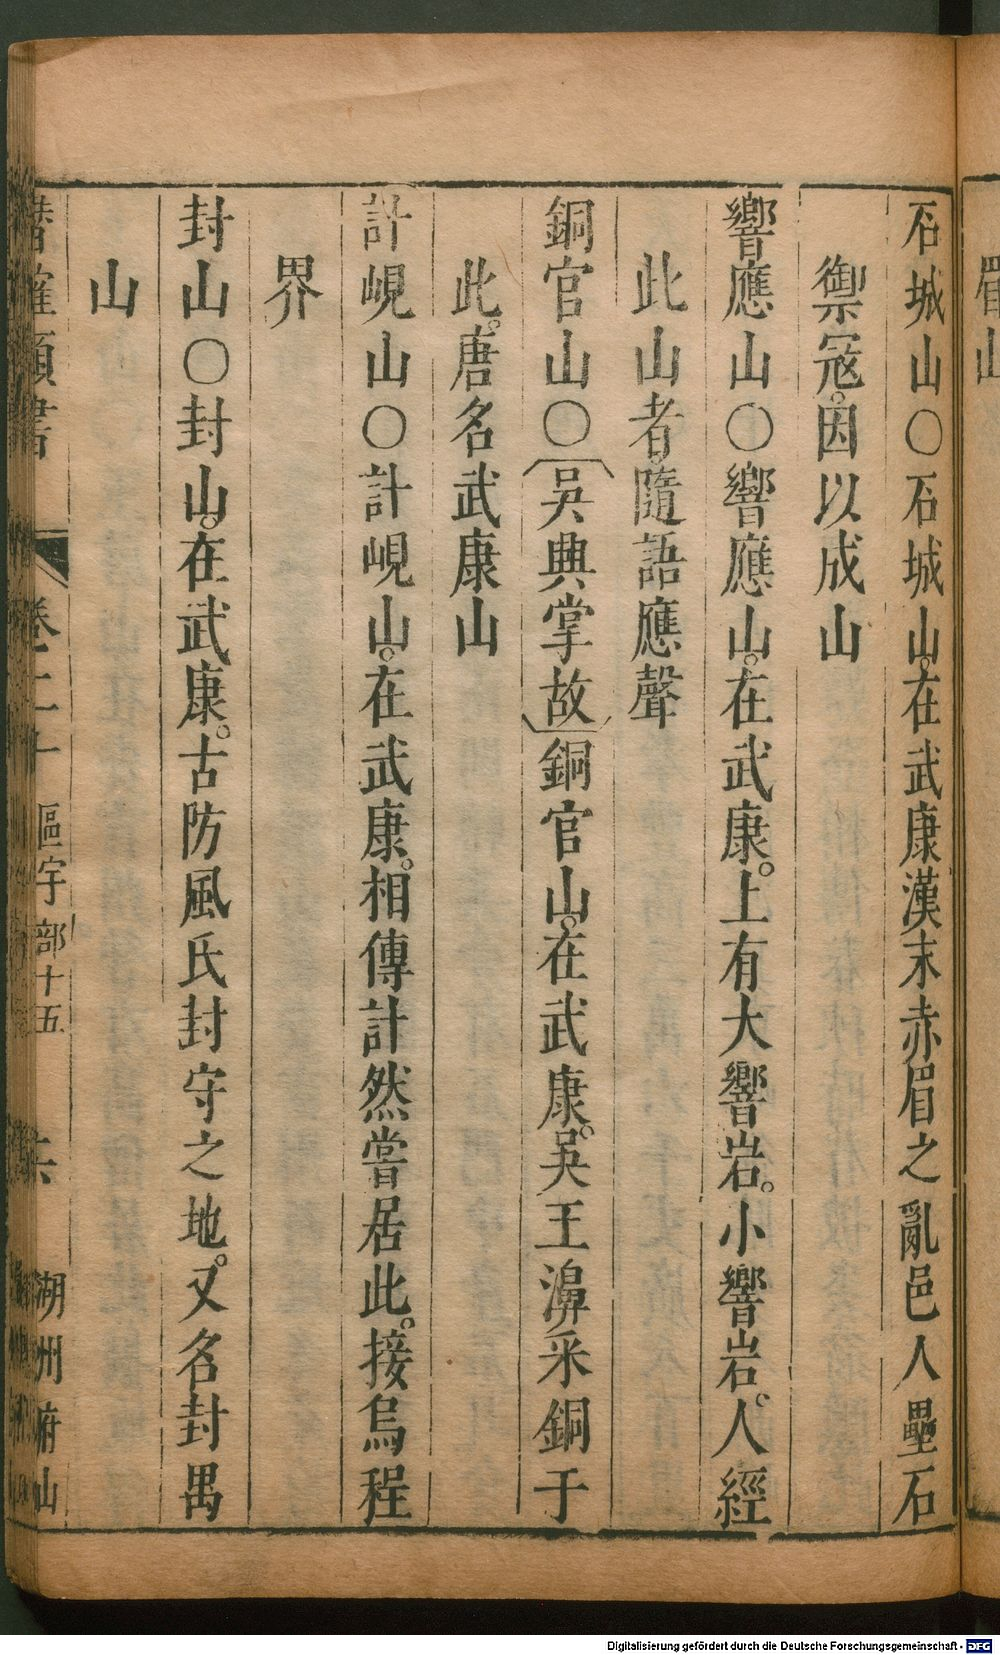 石城山〇石城山。在武康漢末赤眉之亂邑人壘石
禦寇。因以成山
響應山〇響應山。在武康。上有大響岩。小響岩。人經
此山者隨語應聲
銅官山〇〔吳興掌故〕銅官山。在武康。吳王濞采銅于
此。唐名武康山
計峴山〇計峴山。在武康。相傳計然嘗居此。接烏程
界
封山〇封山。在武康。古防風氏封守之地。又名封禺
山
潛確類書 卷二十 區宇部十五 六 湖州府山
Digitalisierung gefördert durch die Deutsche Forschungsgemeinschaft - DFG